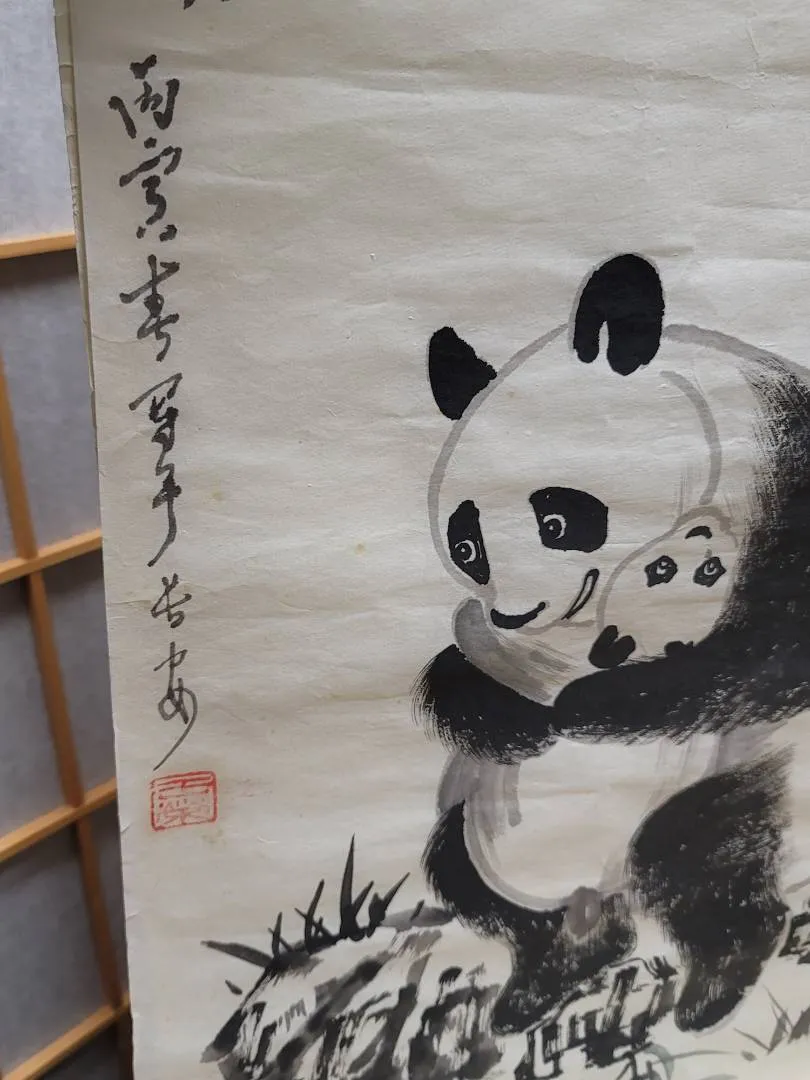 丙寅春写于长安